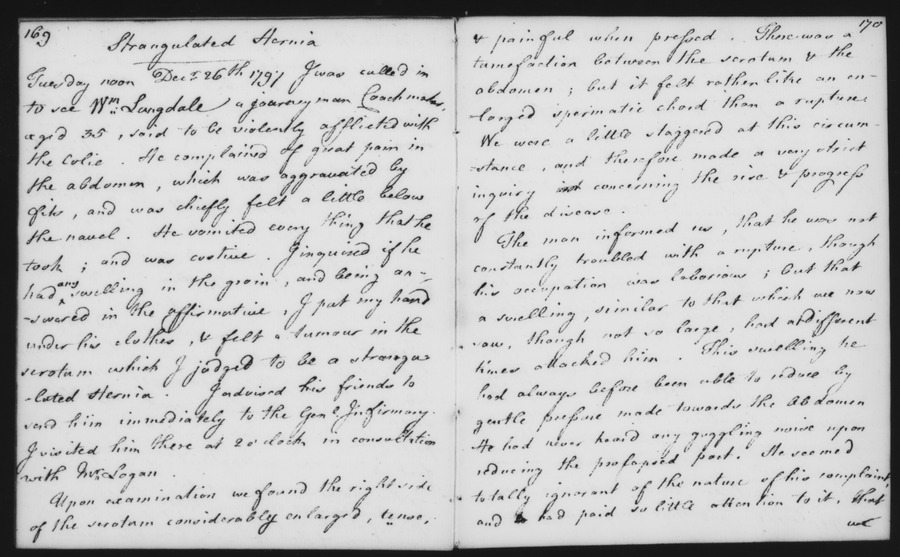 169
Strangulated Hernia
Tuesday noon Decr. 26th 1797 I was called in
to see Wm. Langdale a Journeyman Coach maker,
aged 35, said to be violently afflicted with
the Colic. He complained of great pain in
the abdomen, which was aggravated by
fits, and was chiefly felt a little below
the navel. He vomited every thing that he
took; and was costive. I inquired if he
had any swelling in the groin, and being an-
-swered in the affirmative, I put my hand
under his clothes, & felt a tumour in the
scrotum which I judged to be a strangu-
-lated Hernia. I advised his friends to
send him immediately to the Genl. Infirmary.
I visited him there at 2 o'clock in consultation
with Mr. Logan.
Upon examination we found the right side
of the scrotum considerably enlarged, tense,
170
& painful when pressed. There was a
tumefaction between the scrotum & the
abdomen; but it felt rather like an en-
-larged spermatic chord than a rupture.
We were a little staggered at this circum-
-stance, and therefore made a very strict
inquiry concerning the rise & progress
of the disease.
The man informed us, that he was not
constantly troubled with a rupture, though
his occupation was laborious; but that
a swelling, similar to that which we now
saw, though not so large, had at different
times attacked him. This swelling he
had always before been able to reduce by
gentle pressure made towards the abdomen
He had never heard any guggling noise upon
reducing the prolapsed part. He seemed
totally ignorant of the nature of his complaint,
and had paid so little attention to it, that
we